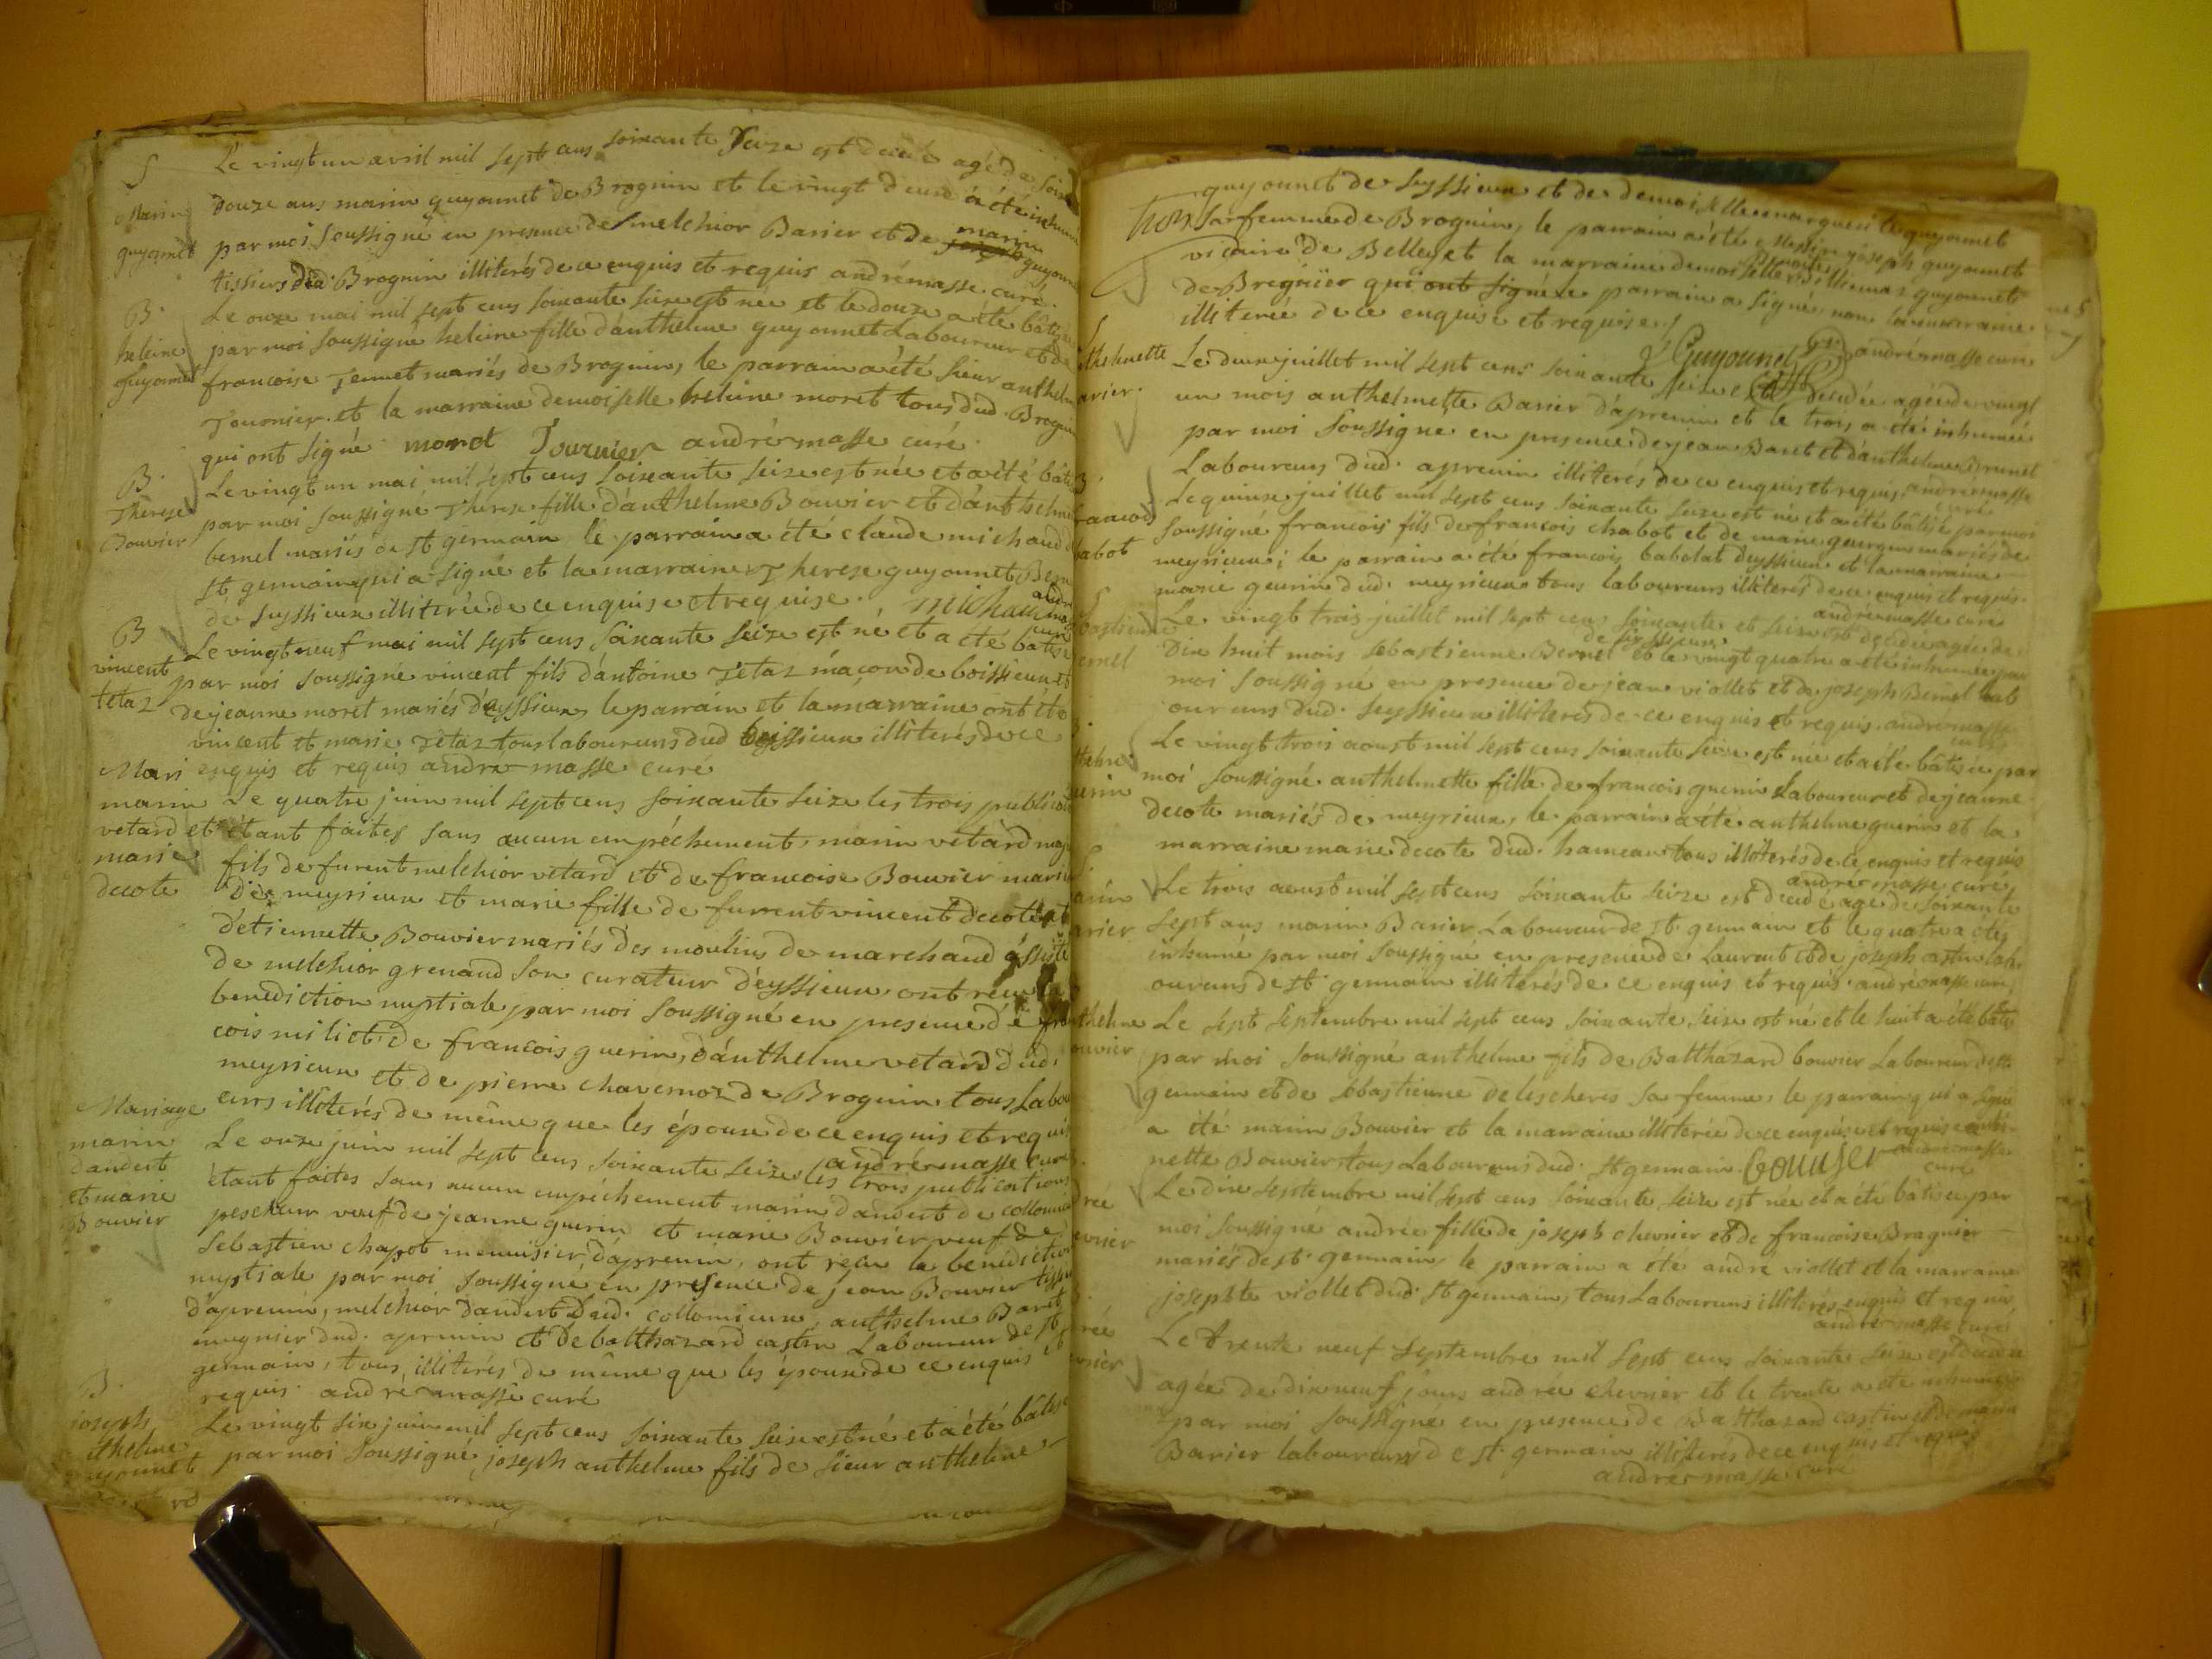 S
Marin
guyonnet
Le vingt un avril mil sept cens soixante seize est decedé agé de soix
douze ans marin guyonnet de Brognin et le vingt deux a été inhumé
par moi soussigné en presence de melchior Barier et de marin guyonnet
tissiers dud. Brognin illiterés de ce enquis et requis andré masse curé.
B.
heleine
guyonnet
Le onze mai mil sept cens soixante seize est née et le douze a été bâtisée
par moi soussigné heleine fille d'anthelme guyonnet Laboureur et de
francoise Jennet mariés de Brognin, le parrain a été sieur anthelme
Tournier et la marraine demoiselle heleine moret tous dud. Brognin
qui ont signé moret Tournier andré masse curé
B.
Thérese
Bouvier
Le vingt un mai mil sept cens soixante seize est née et a été bâtis
par moi soussigné Thérese fille d'anthelme Bouvier et d'anthelme
bernel mariés de st germain le parrain a été claude michaud d
st germain qui a signé et la marraine Therese guyonnet Bern
de seyssieux illiterée de ce enquise et requise. michaud
B
vincent
tetaz
Le vingt neuf mai mil sept cens soixante seize est né et a été bâtisé
par moi soussigné vincent fils d'antoine Tetaz maçon de boissieux et
de jeanne moret mariés d'eyssieux, le parrain et la marraine ont été
vincent et marie Tetaz tous laboureurs dud boissieux illiterés de ce
enquis et requis andré masse curé
Mari
marin
vetard et
marie
decote
Le quatre juin mil sept cens soixante seize les trois publicati
étant faites sans aucun empéchement, marin vetard maj
fils de furent melchior vetard et de francoise Bouvier mariés
de meyrieux et marie fille de furent vincent decote et
d'étiennette Bouvier mariés des moulins de marchand assisté
de melchior grenaud son curateur d'eyssieux ont recu la
benediction nuptiale par moi soussigné en presence de fran
cois miliet, de francois guerin, d'anthelme vetard dud.
meyrieux et de pierre chavernoz de Brognin tous Labou
eurs illiterés de même que les époux de ce enquis et requis
andré masse curé
Mariage
marin
dandert
et marie
Bouvier
Le onze juin mil sept cens soixante seize les trois publications
étant faites sans aucun empéchement marin dandert de collomieu
pescheur veuf de jeanne guerin et marie Bouvier veuf de
sebastien chapot menuisier d'apremin, ont reçu la benediction
nuptiale par moi soussigné en presence de jean Bouvier tissie
d'apremin, melchior dandert dud. collomieux, anthelme Baret
meugnier dud. apremin et de balthazard castin Laboureur de st
germain, tous illiterés de même que les époux de ce enquis et
requis. andré masse curé
B.
joseph
anthelme
guyonnet
Le vingt six juin mil sept cens soixante seize est né et a été bâtisé
par moi soussigné joseph anthelme fils de sieur anthelme
guyonnet de seyssieux et de demoiselle marguerite guyonnet
sa femme de Brognin, le parrain a été Messire joseph guyonnet
vicaire de Belley et la marraine demoiselle Benoite Billiemaz guyonnet
de Bregnier qui ont signé le parrain a signé non la marraine
illiterée de ce enquise et requise.
J Guyonnet andré masse curé
thelmette
arier.
Le deux juillet mil sept cens soixante seize est decedée agée de vingt
un mois anthelmette Barier d'apremin et le trois a été inhumée
par moi soussigné en presence de jean Baret et d'anthelme Brunet
Laboureurs dud. apremin illiterés de ce enquis et requis, andré masse
curé
B.
francois
habot
Le quinze juillet mil sept cens soixante seize est né et a été bâtisé par moi
soussigné francois fils de francois chabot et de marie guerin mariés de
meyrieux; le parrain a été francois babolat d'eyssieux et la marraine
marie geurin dud. meyrieux tous laboureurs illiterés de ce enquis et requis.
andré masse curé
S
bastienne
ernel
Le vingt trois juillet mil sept cens soixante et seize est decedée agée de
dix huit mois sebastienne Bernel de seyssieux et le vingt quatre a été inhumée par
moi soussigné en presence de jean viollet et de joseph Bernel lab
oureurs dud. seyssieux illiterés de ce enquis et requis. andré masse
curé
thelme
uerin
Le vingt trois aoust mil sept cens soixante seize est née et a été bâtisée par
moi soussigné anthelmette fille de francois guerin Laboureur et de jeanne
decote mariés de meyrieux, le parrain a été anthelme guerin et la
marraine marie decote dud. hameau tous illiterés de ce enquis et requis
andré masse curé
S.
arin
arier
Le trois aoust mil sept cens soixante seize est decedé agé de soixante
sept ans marin Barier Laboureur de st. germain et le quatre a été
inhumé par moi soussigné en presence de Laurent et de joseph castin lab
oureurs de st. germain illiterés de ce enquis et requis. andré masse curé
nthelme
ouvier
Le sept septembre mil sept cens soixante seize est né et le huit a été bâtis
par moi soussigné anthelme fils de Balthazard bouvier Laboureur de st
germain et de sebastienne delescheres sa femme, le parrain qui a signé
a été marin Bouvier et la marraine illiterée de ce enquise et requise anthel
nette Bouvier, tous Laboureurs dud. st germain Bouvier andré masse
curé
drée
evrier
Le dix septembre mil sept cens soixante seize est née et a été bâtisée par
moi soussigné andrée fille de joseph chevrier et de francoise Brognier
mariés de st. germain, le parrain a été andre viollet et la marraine
josephte viollet dud. st germain, tous Laboureurs illiterés enquis et requis
andré masse curé
rée
evrier
Le trente neuf septembre mil sept cens soixante seize est decedée
agée de dix neuf jours andrée chevrier et le trente a été inhumée
par moi soussigné en presence de Balthazard castin et de marin
Barier laboureurs de st. germain illiterés de ce enquis et requis
andré masse curé